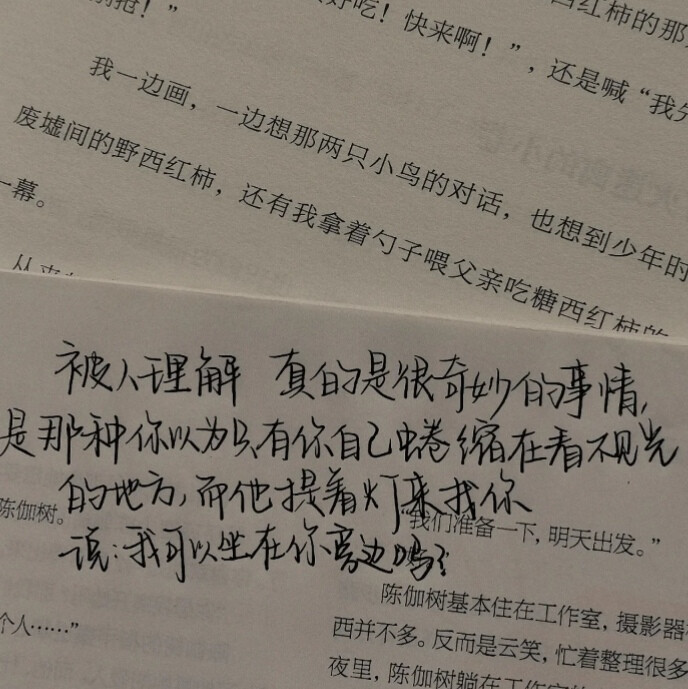 好吃！快来啊！”，还是喊“我先
西红柿的那
别抢！”
我一边画，一边想那两只小鸟的对话，也想到少年时
废墟间的野西红柿，还有我拿着勺子喂父亲吃糖西红柿的
一幕。
被人理解 真的是很奇妙的事情，
是那种你以为只有你自己蜷缩在看不见光
的地方，而他提着灯来找你
说：我可以坐在你旁边吗？
陈伽树。
我们准备一下，明天出发。”
陈伽树基本住在工作室，摄影器
个人……”
西并不多。反而是云笑，忙着整理很多
夜里，陈伽树躺在工作室的